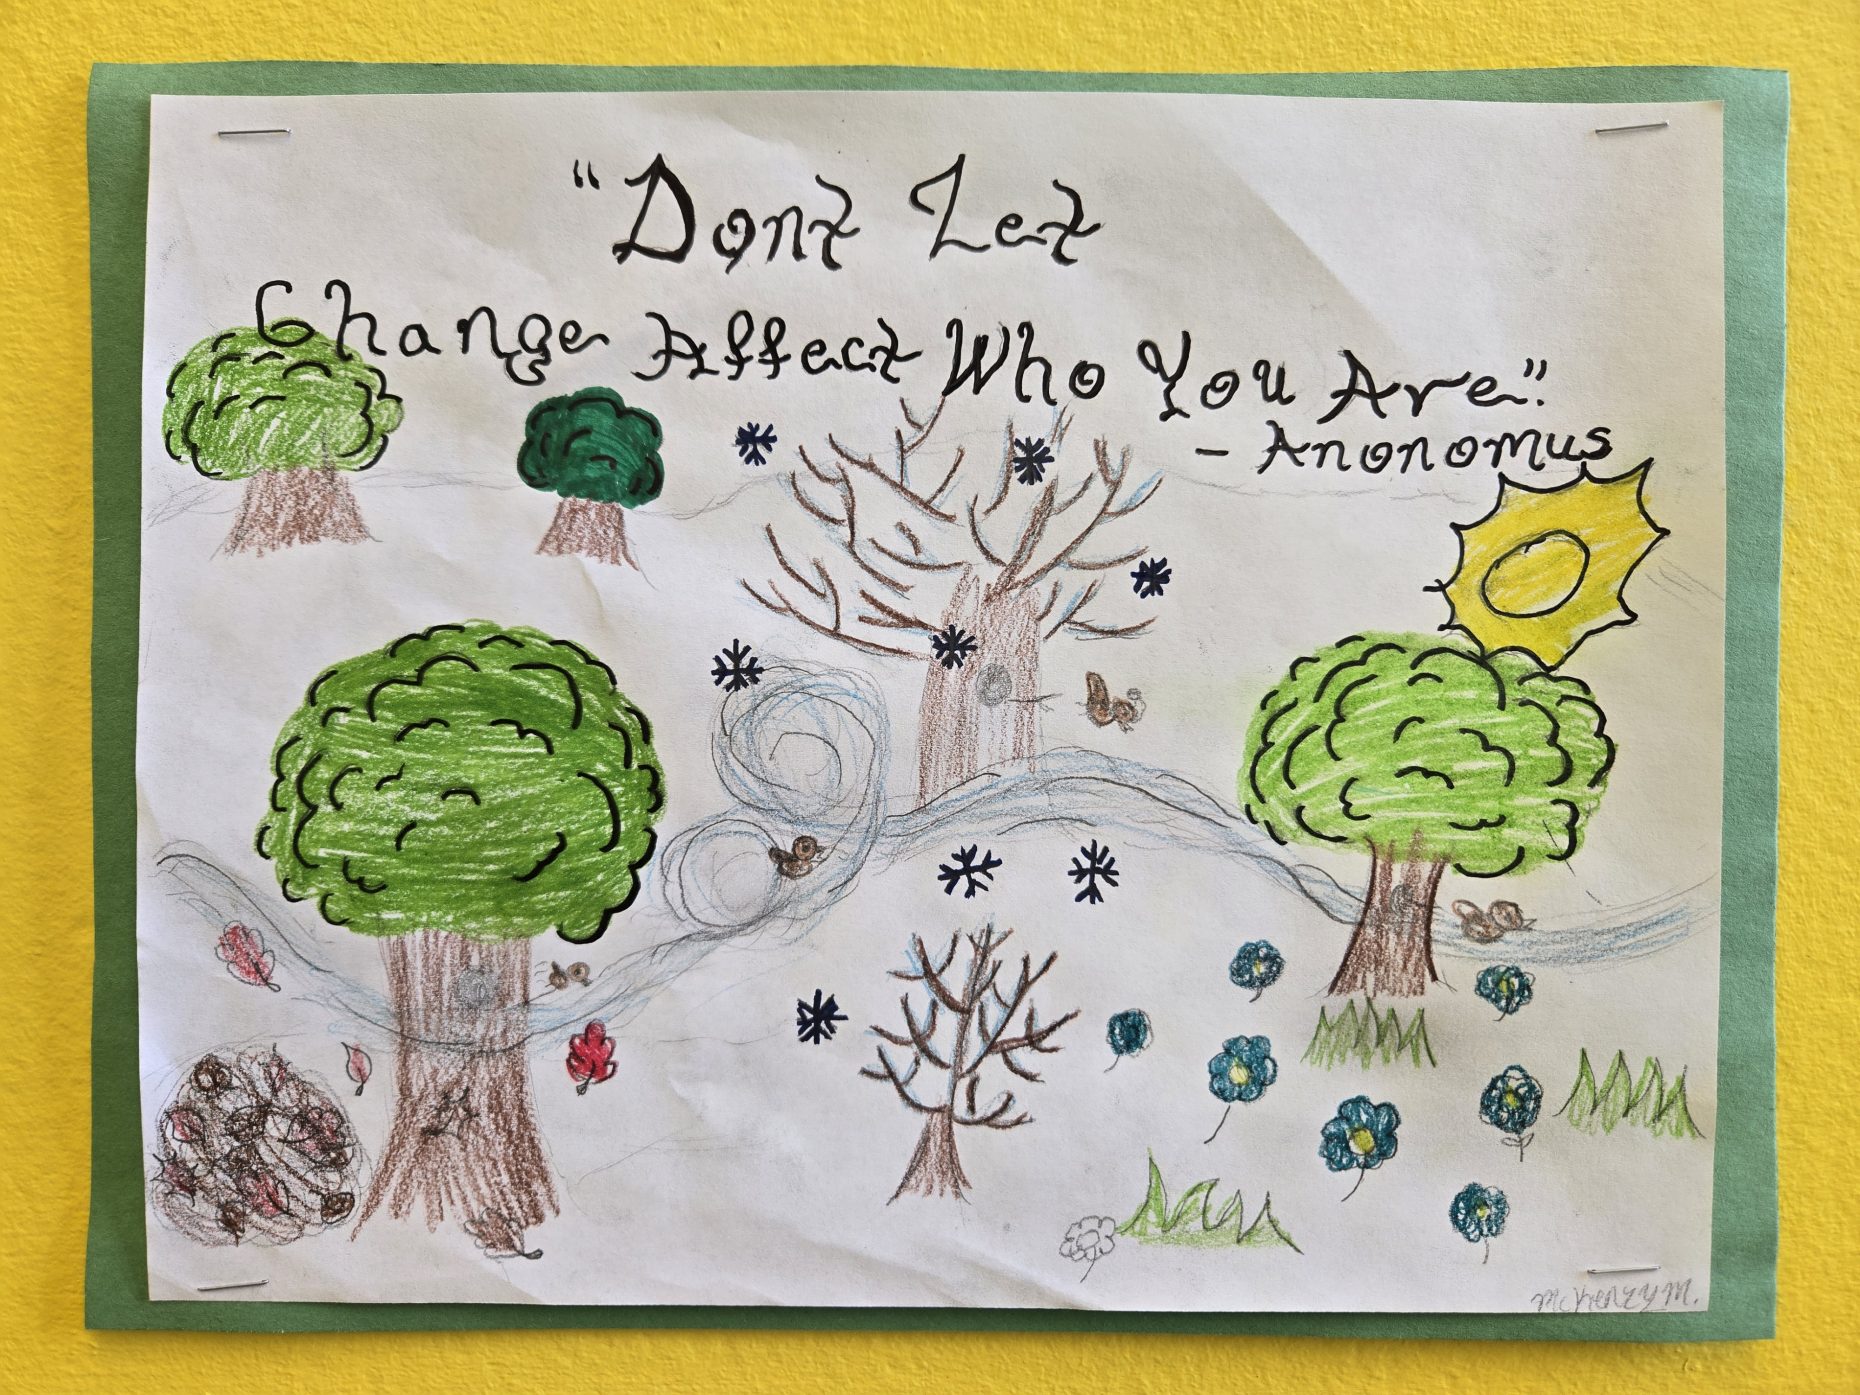 "Dont Let
Change Affect Who You Are".
- Anonomus
McKenzy M.